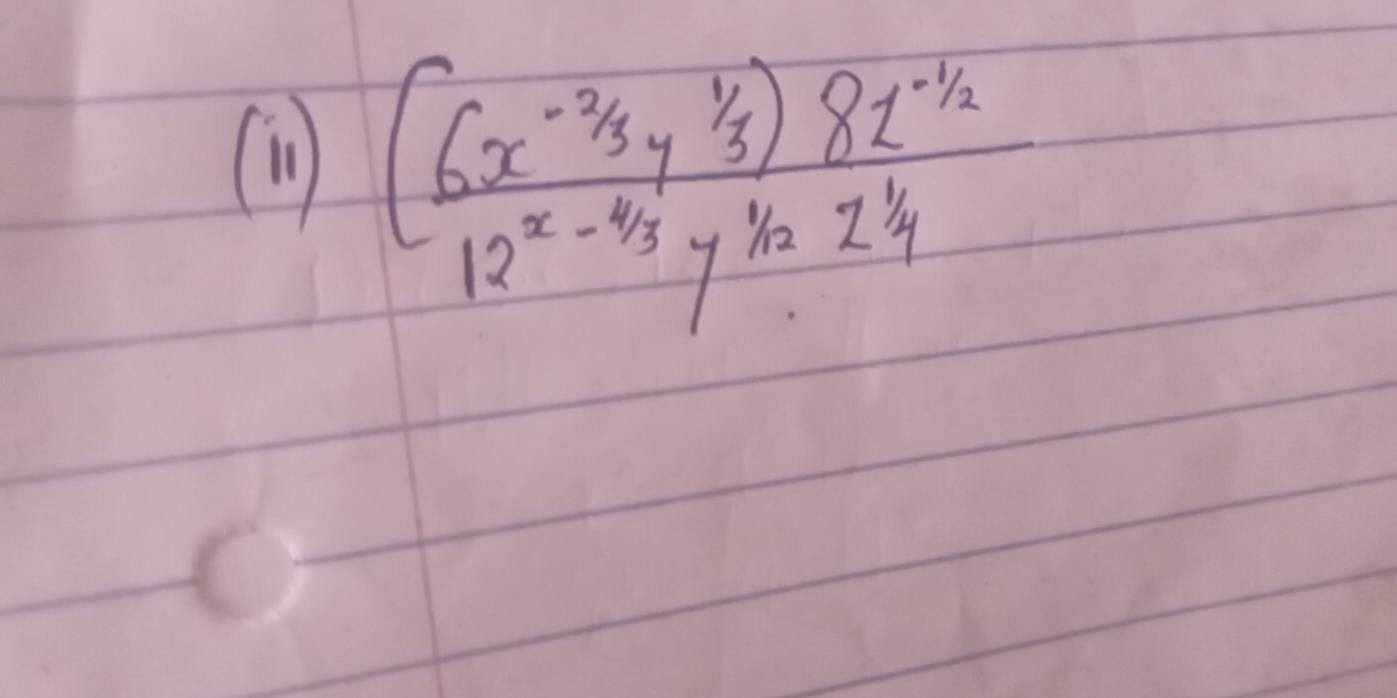 (ii) (6x^{-2/3} y^{1/3}) 8z^{-1/2}
12^{x - 4/3} y^{1/12} z^{1/4}